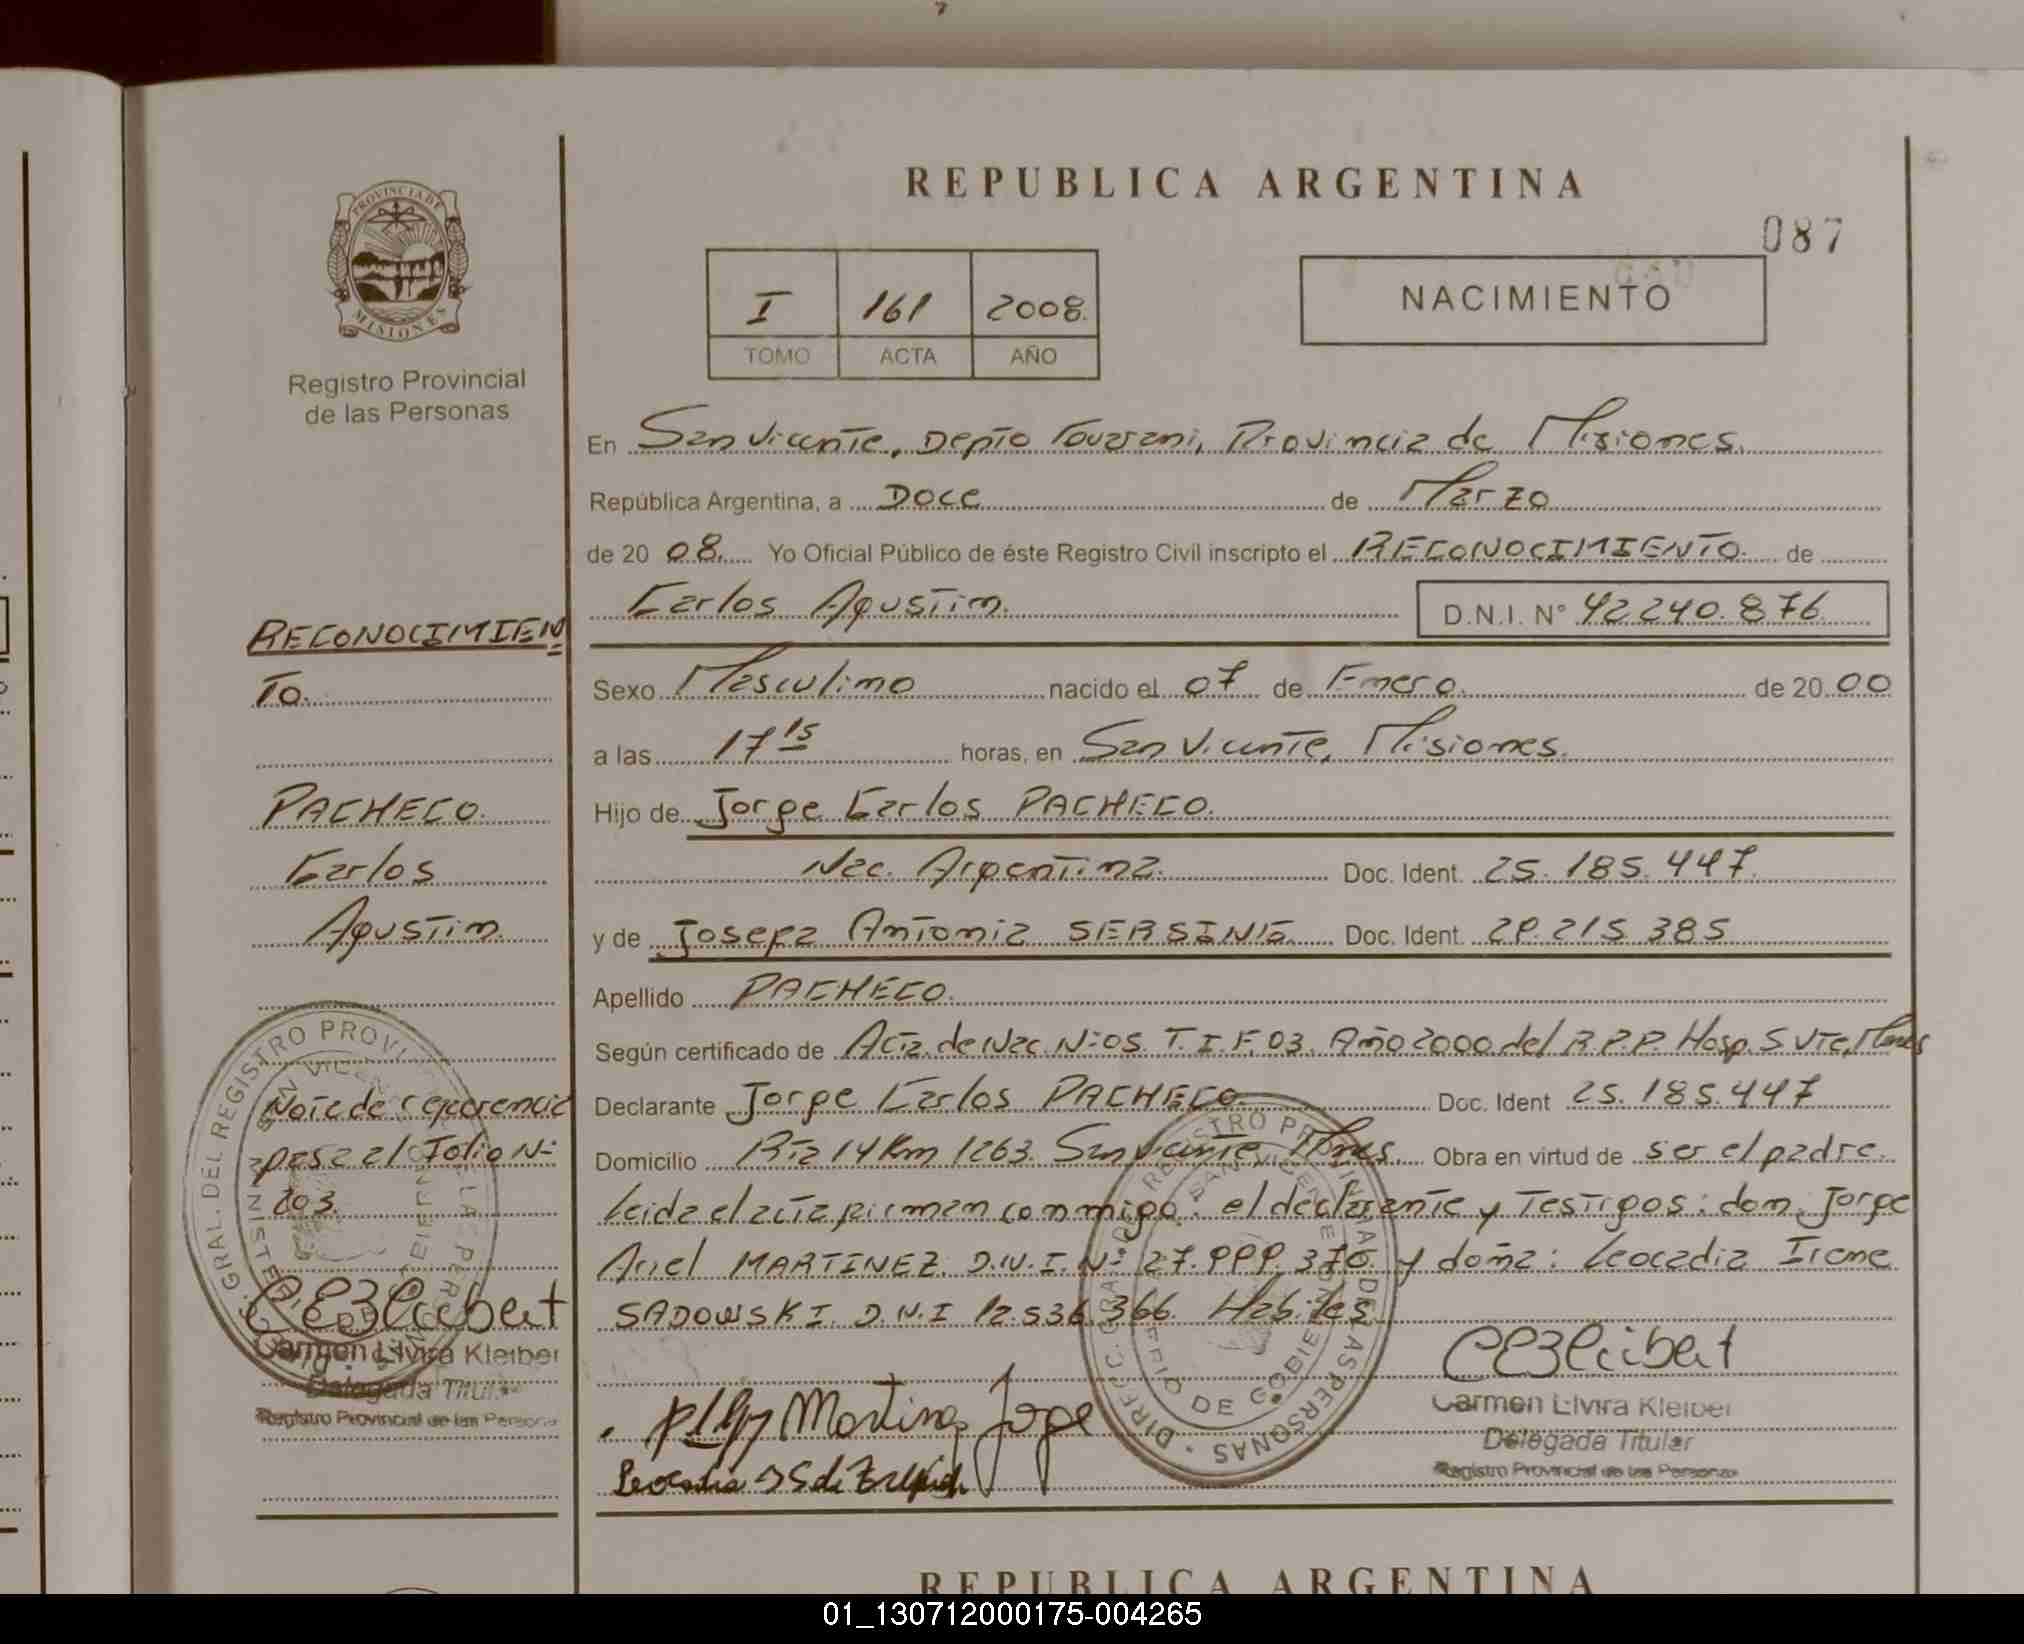 REPUBLICA ARGENTINA
087
PROVINCIA DE MISIONES
Registro Provincial
de las Personas
I 161 2008
TOMO ACTA AÑO
NACIMIENTO
En San Vicente, Depto Guarani, Provincia de Misiones.
República Argentina, a Doce de Marzo
de 20 08. Yo Oficial Público de éste Registro Civil inscripto el RECONOCIMIENTO. de
Carlos Agustin.
D.N.I. N° 42240.876.
Sexo Masculino nacido el 07 de Enero. de 20 00
a las 17 15 horas, en San Vicente, Misiones.
Hijo de Jorge Carlos PACHECO.
Nac. Argentina. Doc. Ident. 25.185.447.
y de Josefa Antonia Doc. Ident. 29.215.385
Apellido PACHECO.
Según certificado de Acta de Nac. N:05 T. I. F, 03. Año 2000 del R.P.P. Hosp. S Vte, Mnes
Declarante Jorge Carlos PACHECO. Doc. Ident 25.185.447
Domicilio Rta 14 Km 1263. San Vicente Mnes. Obra en virtud de ser el padre.
Leida el acta firman conmigo: el declarante y Testigos: don: Jorge
Ariel MARTINEZ. D.N.I. N: 27.999.370 y doña: Leocadia Irene
SADOWSKI. D.N.I 12.536.366. Habiles
Martinez Jorge
Leocadia
Carmen Elvira Kleiber
Delegada Titular
Registro Provincial de las Personas
RECONOCIMIEN
To.
PACHECO.
Carlos
Agustin
Nota de referencia
pasa al Folio N:
203.
Carmen Elvira Kleiber
Delegada Titular
Registro Provincial de las Persona
REPUBLICA ARGENTINA
01_130712000175-004265